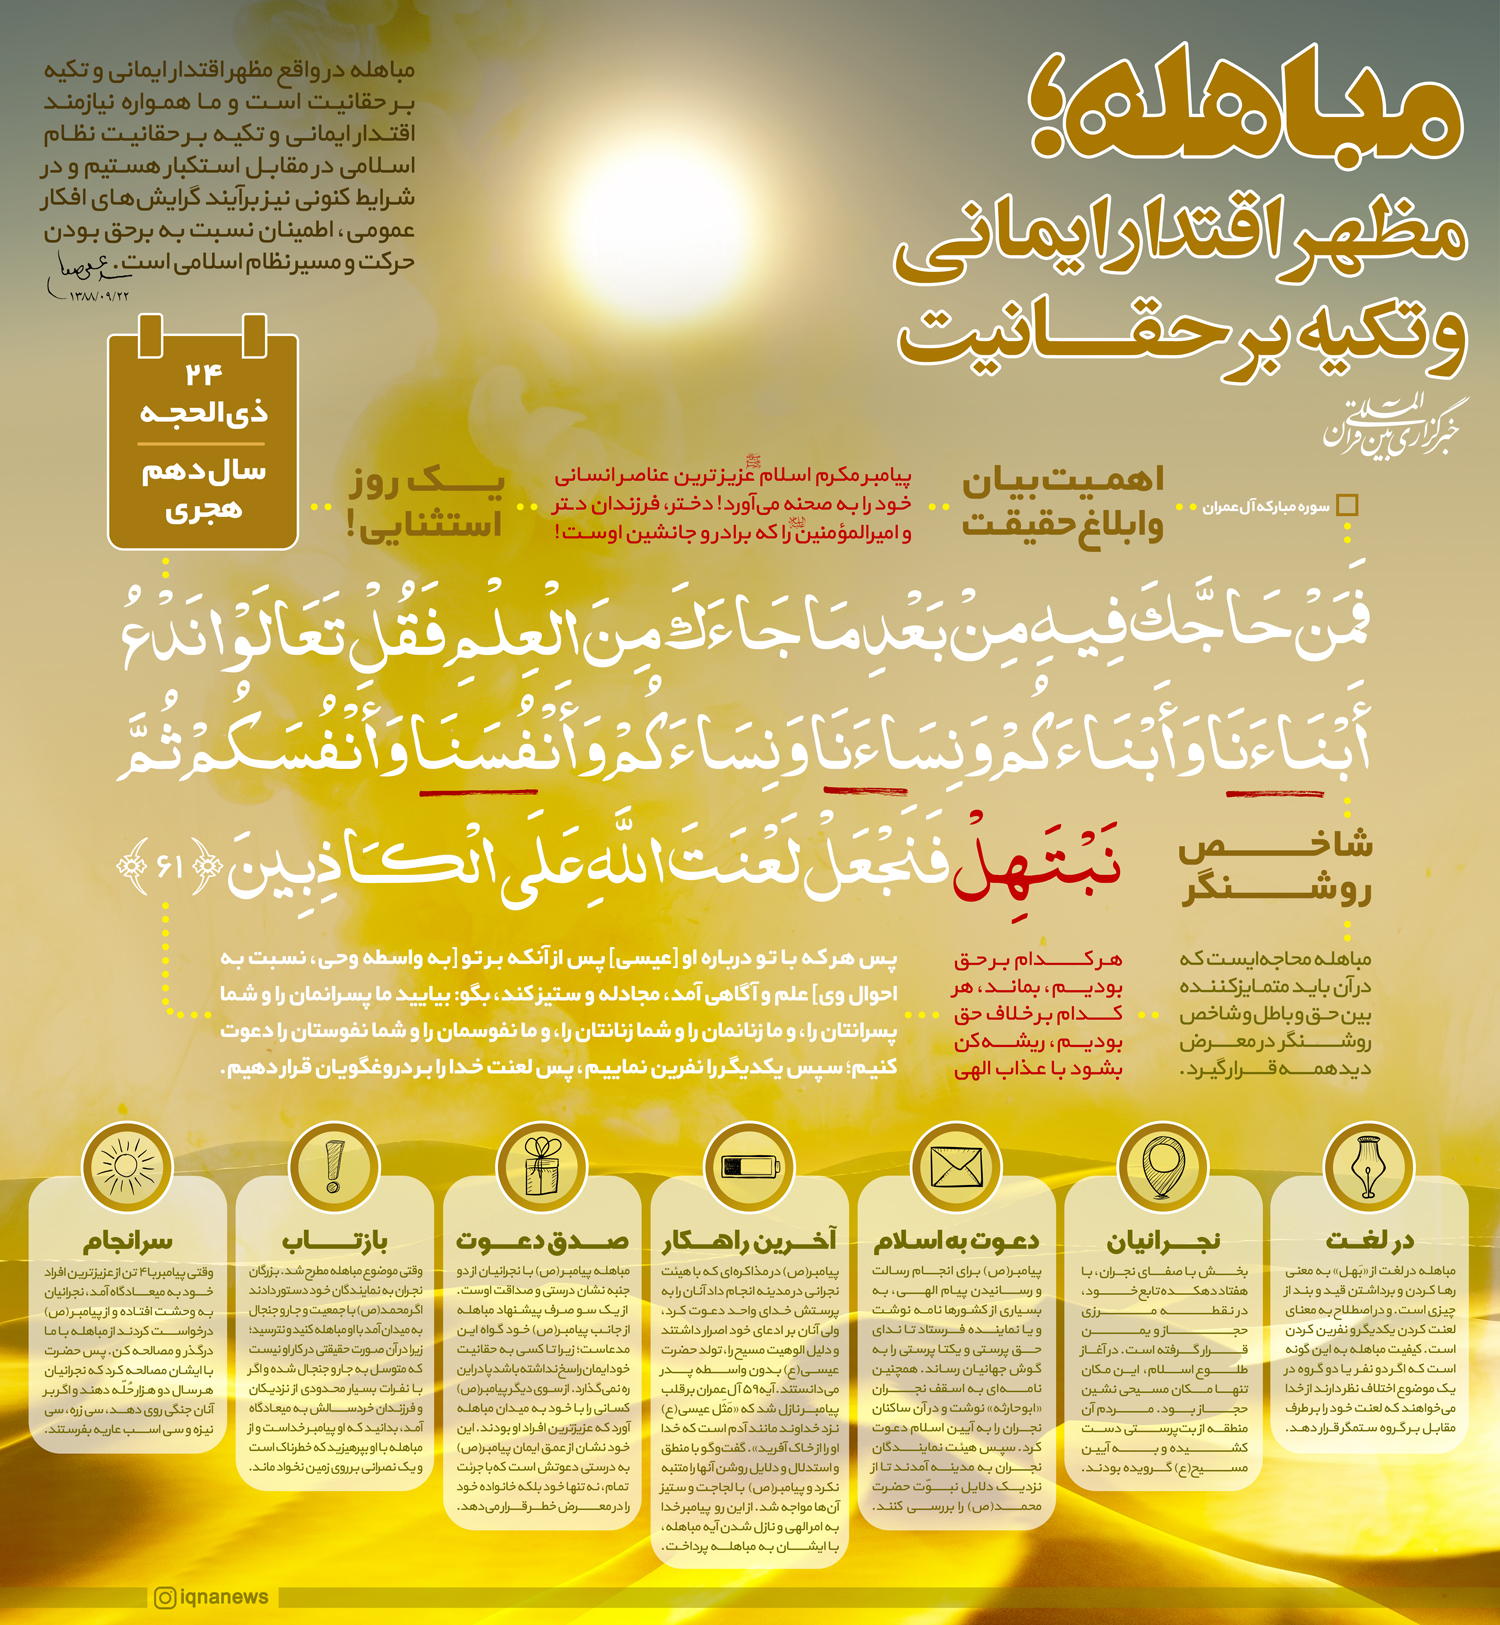 مباهله؛
مظهر اقتدار ایمانی
و تکیه بر حقانیت
خبرگزاری بین‌المللی قرآن
مباهله در واقع مظهر اقتدار ایمانی و تکیه
بر حقانیت است و ما همواره نیازمند
اقتدار ایمانی و تکیه بر حقانیت نظام
اسلامی در مقابل استکبار هستیم و در
شرایط کنونی نیز برآیند گرایش‌های افکار
عمومی، اطمینان نسبت به برحق بودن
حرکت و مسیر نظام اسلامی است.
۱۳۸۸/۰۹/۲۲
سوره مبارکه آل عمران
اهمیت بیان
و ابلاغ حقیقت
پیامبر مکرم اسلام ﷺ عزیزترین عناصر انسانی
خود را به صحنه می‌آورد! دختر، فرزندان دتر
و امیرالمؤمنین را که برادر و جانشین اوست!
یک روز
استثنایی!
۲۴
ذی‌الحجه
سال دهم
هجری
فَمَنْ حَاجَّكَ فِيهِ مِنْ بَعْدِ مَا جَاءَكَ مِنَ الْعِلْمِ فَقُلْ تَعَالَوْا نَدْعُ
أَبْنَاءَنَا وَأَبْنَاءَكُمْ وَنِسَاءَنَا وَنِسَاءَكُمْ وَأَنْفُسَنَا وَأَنْفُسَكُمْ ثُمَّ
نَبْتَهِلْ فَنَجْعَلْ لَعْنَتَ اللَّهِ عَلَى الْكَاذِبِينَ ﴿۶۱﴾
شاخص
روشنگر
مباهله محاجه‌ایست که
در آن باید متمایزکننده
بین حق و باطل و شاخص
روشنگر در معرض
دید همه قرار گیرد.
هر کدام بر حق
بودیم، بماند، هر
کدام برخلاف حق
بودیم، ریشه‌کن
بشود با عذاب الهی
پس هر که با تو درباره او [عیسی] پس از آنکه بر تو [به واسطه وحی، نسبت به
احوال وی] علم و آگاهی آمد، مجادله و ستیز کند، بگو: بیایید ما پسرانمان را و شما
پسرانتان را، و ما زنانمان را و شما زنانتان را، و ما نفوسمان را و شما نفوستان را دعوت
کنیم؛ سپس یکدیگر را نفرین نماییم، پس لعنت خدا را بر دروغگویان قرار دهیم.
در لغت
مباهله در لغت از «بَهل» به معنی
رها کردن و برداشتن قید و بند از
چیزی است. و در اصطلاح به معنای
لعنت کردن یکدیگر و نفرین کردن
است. کیفیت مباهله به این گونه
است که اگر دو نفر یا دو گروه در
یک موضوع اختلاف نظر دارند از خدا
می‌خواهند که لعنت خود را بر طرف
مقابل بر گروه ستمگر قرار دهد.
نجرانیان
بخش با صفای نجران، با
هفتاد دهکده تابع خود،
در نقطه مرزی
حجاز و یمن
قرار گرفته است. در آغاز
طلوع اسلام، این مکان
تنها مکان مسیحی نشین
حجاز بود. مردم آن
منطقه از بت‌پرستی دست
کشیده و به آیین
مسیح(ع) گرویده بودند.
دعوت به اسلام
پیامبر(ص) برای انجام رسالت
و رسانیدن پیام الهی، به
بسیاری از کشورها نامه نوشت
و یا نماینده فرستاد تا ندای
حق پرستی و یکتا پرستی را به
گوش جهانیان رساند. همچنین
نامه‌ای به اسقف نجران
«ابوحارثه» نوشت و در آن ساکنان
نجران را به آیین اسلام دعوت
کرد. سپس هیئت نمایندگان
نجران به مدینه آمدند تا از
نزدیک دلایل نبوّت حضرت
محمد(ص) را بررسی کنند.
آخرین راهکار
پیامبر(ص) در مذاکره‌ای که با هیئت
نجرانی در مدینه انجام داد آنان را به
پرستش خدای واحد دعوت کرد،
ولی آنان بر ادعای خود اصرار داشتند
و دلیل الوهیت مسیح را، تولد حضرت
عیسی(ع) بدون واسطه پدر
می‌دانستند. آیه ۵۹ آل عمران بر قلب
پیامبر نازل شد که «مَثل عیسی(ع)
نزد خداوند مانند آدم است که خدا
او را از خاک آفرید». گفت‌وگو با منطق
و استدلال و دلایل روشن آنها را متنبه
نکرد و پیامبر(ص) با لجاجت و ستیز
آن‌ها مواجه شد. از این رو پیامبر خدا
به امر الهی و نازل شدن آیه مباهله،
با ایشان به مباهله پرداخت.
صدق دعوت
مباهله پیامبر(ص) با نجرانیان از دو
جنبه نشان درستی و صداقت اوست.
از یک سو صرف پیشنهاد مباهله
از جانب پیامبر(ص) خود گواه این
مدعاست؛ زیرا تا کسی به حقانیت
خود ایمان راسخ نداشته باشد پا در این
ره نمی‌گذارد. از سوی دیگر پیامبر(ص)
کسانی را با خود به میدان مباهله
آورد که عزیزترین افراد او بودند. این
خود نشان از عمق ایمان پیامبر(ص)
به درستی دعوتش است که با جرئت
تمام، نه تنها خود بلکه خانواده خود
را در معرض خطر قرار می‌دهد.
بازتاب
وقتی موضوع مباهله مطرح شد. بزرگان
نجران به نمایندگان خود دستور دادند
اگر محمد(ص) با جمعیت و جار و جنجال
به میدان آمد با او مباهله کنید و نترسید؛
زیرا در آن صورت حقیقتی در کار او نیست
که متوسل به جار و جنجال شده و اگر
با نفرات بسیار محدودی از نزدیکان
و فرزندان خردسالش به میعادگاه
آمد، بدانید که او پیامبر خداست و از
مباهله با او بپرهیزید که خطرناک است
و یک نصرانی بر روی زمین نخواد ماند.
سرانجام
وقتی پیامبر با ۴ تن از عزیزترین افراد
خود به میعادگاه آمد، نجرانیان
به وحشت افتاده و از پیامبر(ص)
درخواست کردند از مباهله با ما
درگذر و مصالحه کن. پس حضرت
با ایشان مصالحه کرد که نجرانیان
هر سال دو هزار حُلّه دهند و اگر بر
آنان جنگی روی دهد، سی زره، سی
نیزه و سی اسب عاریه بفرستند.
iqnanews